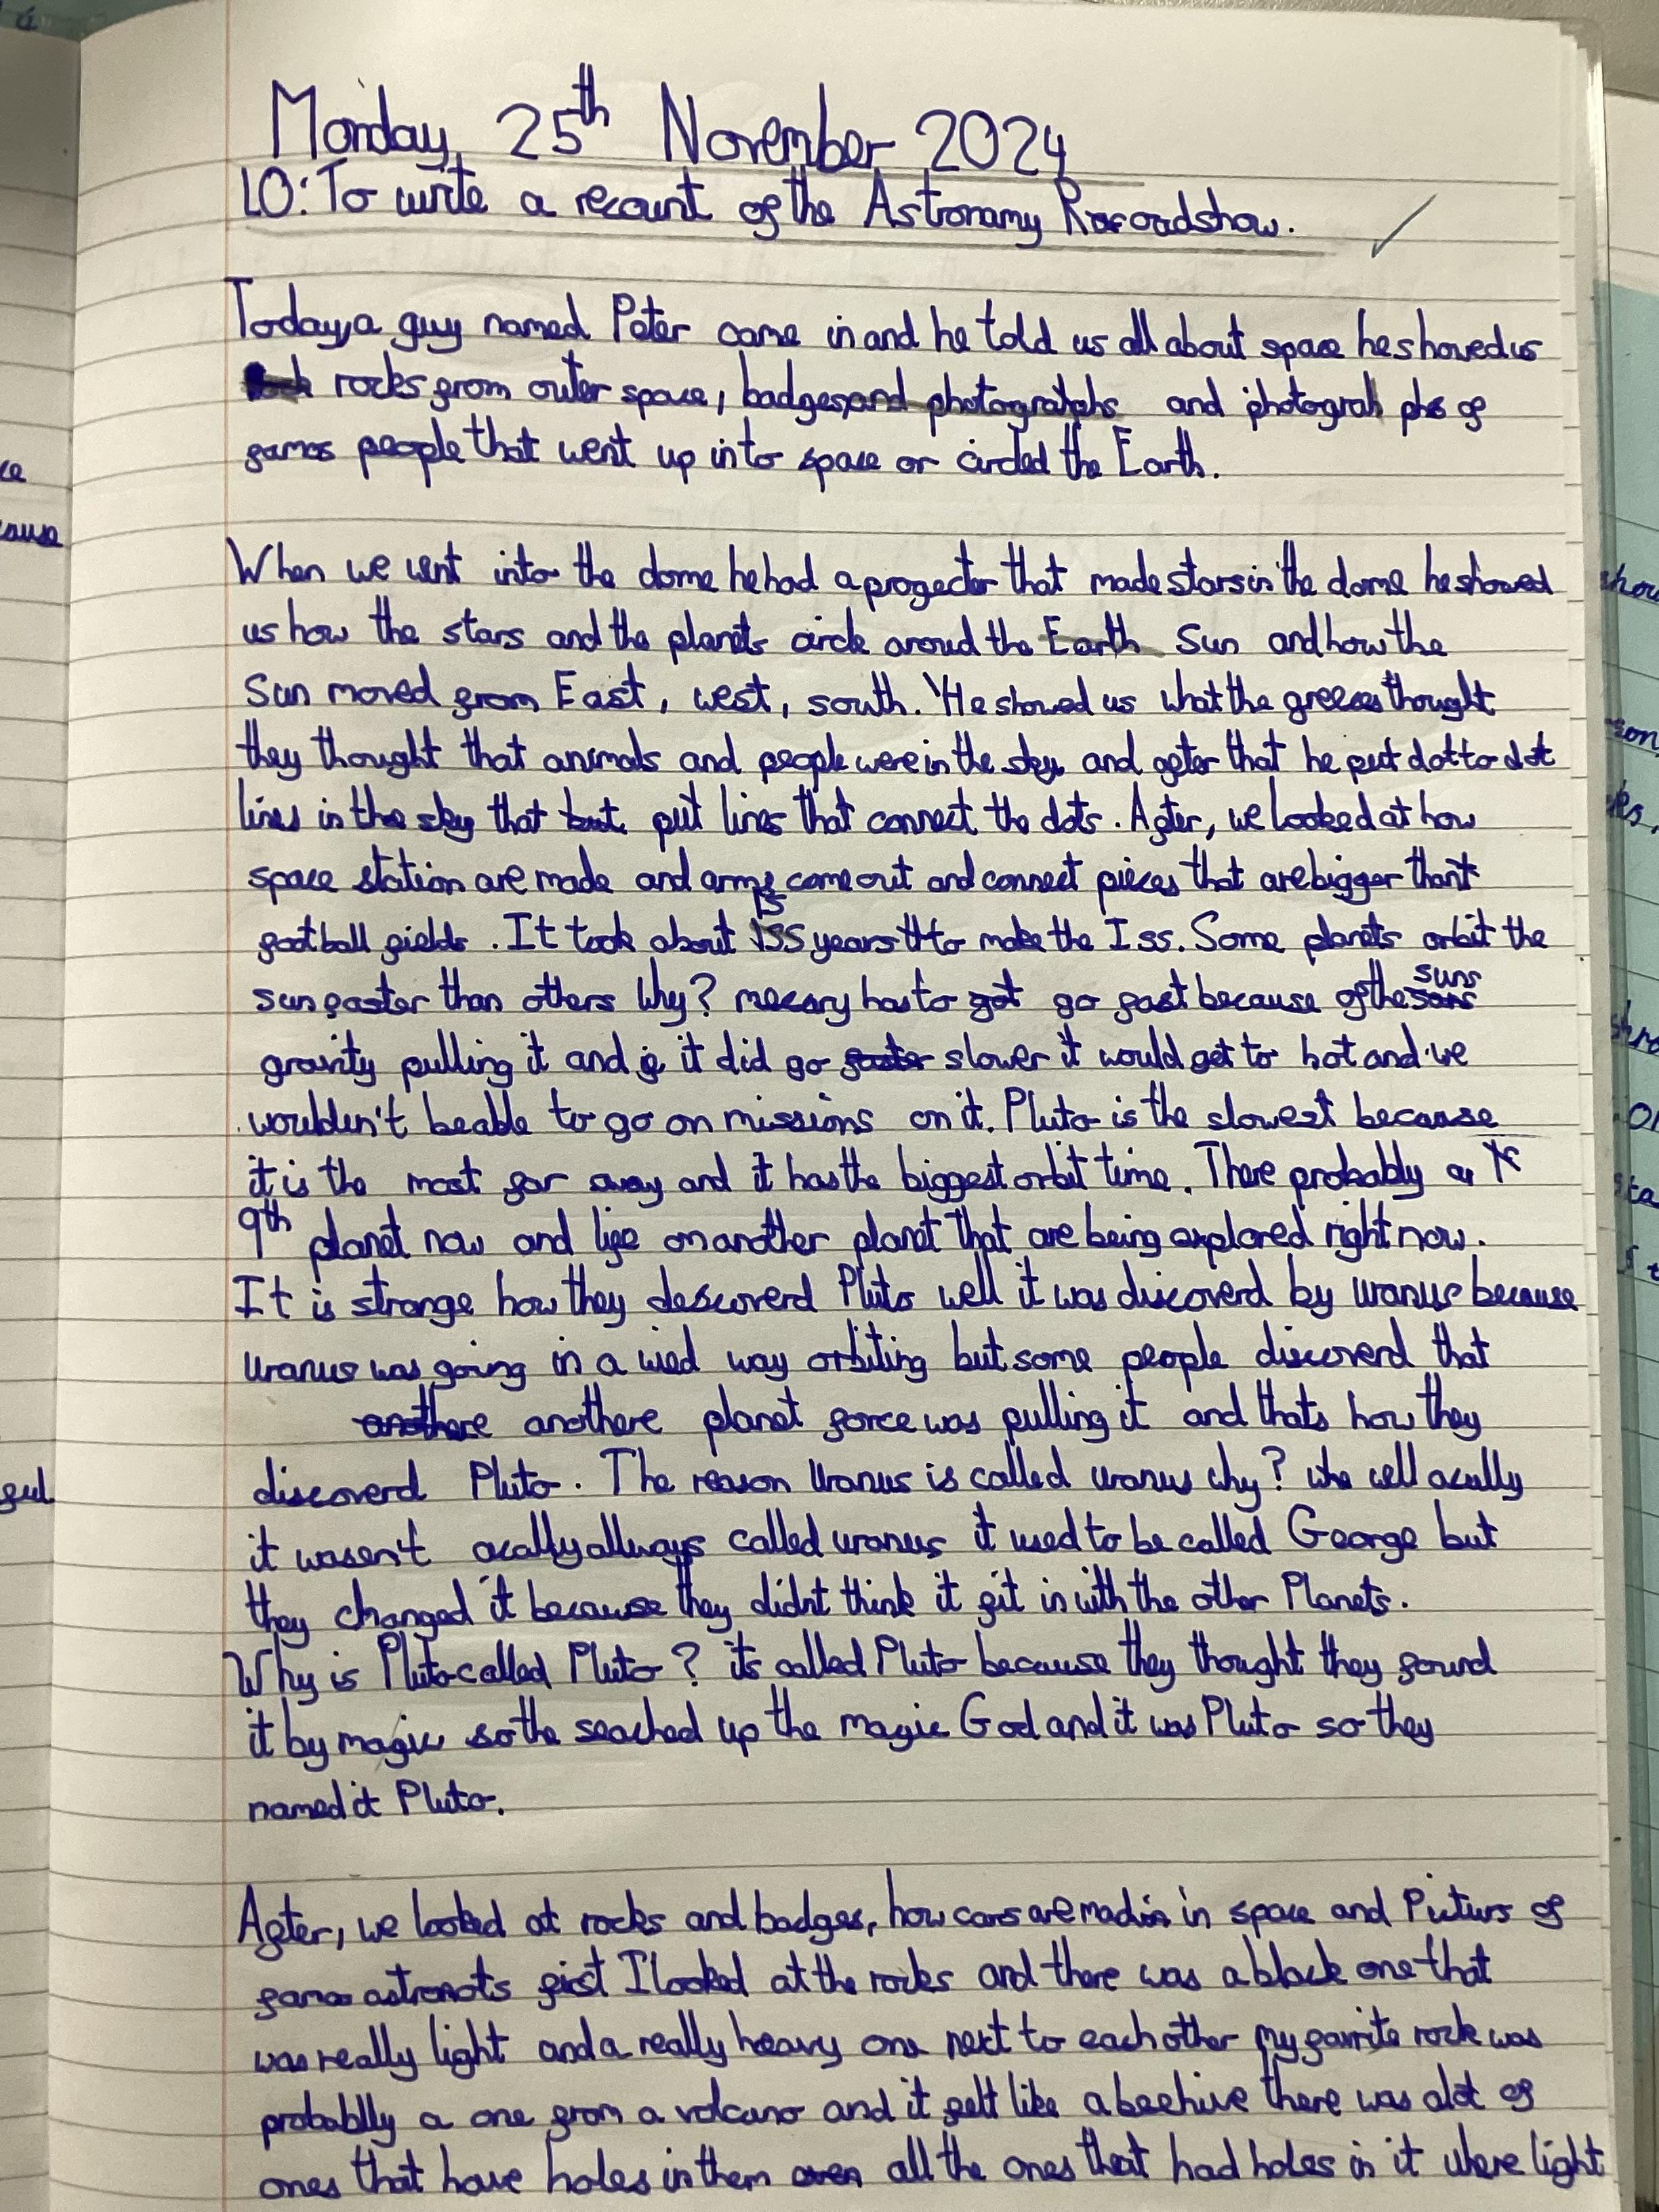 Monday 25th November 2024
LO: To write a recount of the Astronomy Roadshow.
Today, a guy named Peter came in and he told us all about space he showed us
rocks from outer space, badges, and photographs and photograh phs of
famos people that went up into space or circled the Earth.
ce
ause
When we went into the dome he had a progector that made stars in the dome he showed
us how the stars and the planets circle aroud the Earth Sun and how the
Sun moved from East, west, south. He showed us what the greeces thought
they thought that animals and people were in the sky and after that he put dot to dot
lines in the sky that but put lines that connect the dots. After, we looked at how
space station are made and arms come out and connect pieces that are bigger than
football fields. It took about 15 years to make the Iss. Some planets orbit the
sun faster than others Why? mecary has to got go fast because of the suns
gravity pulling it and if it did go faster slower it would get to hot and we
wouldn't be able to go on missions on it. Pluto is the slowest because
it is the most far away and it has the biggest orbit time. There probably a
9th planet now and life on another planet that are being explored right now.
It is strange how they descoverd Pluto well it was discoverd by uranus because
uranus was going in a wied way orbiting but some people discoverd that
anothere anothere planet force was pulling it and thats how they
discoverd Pluto. The reason Uranus is called uranus why? well acally
it wasen't acally allways called uranus it used to be called George but
they changed it because they didnt think it fit in with the other Planets.
Why is Pluto called Pluto? its called Pluto because they thought they found
it by magic so the seached up the magic God and it was Pluto so they
named it Pluto.
After, we looked at rocks and badges, how cars are made in in space and Picturs of
famos astronots first I looked at the rocks and there was a black one that
was really light and a really heavy one next to each other my favrite rock was
probablly a one from a volcano and it felt like a beehive there was alot of
ones that have holes in them even all the ones that had holes in it where light